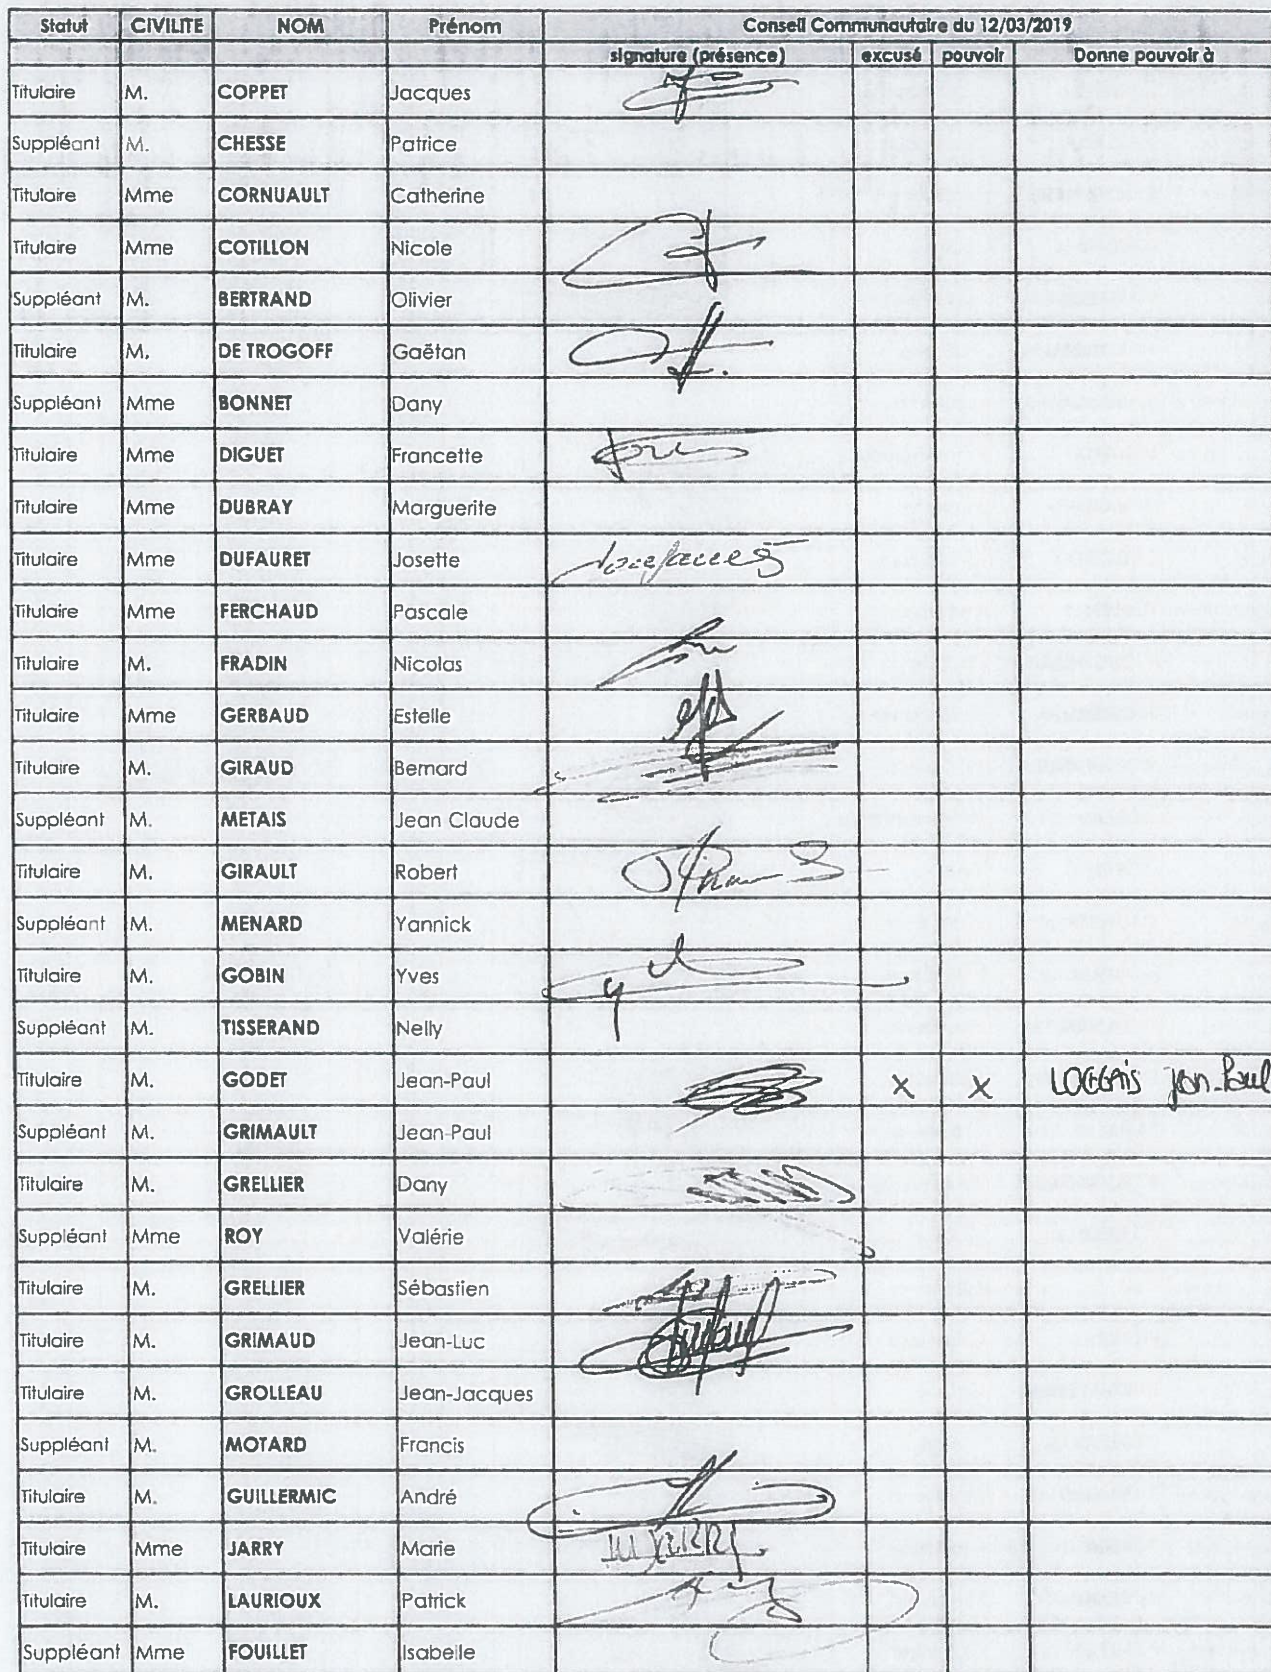 Statut CIVILITE NOM Prénom Conseil Communautaire du 12/03/2019
signature (présence) excusé pouvoir Donne pouvoir à
Titulaire M. COPPET Jacques
Suppléant M. CHESSE Patrice
Titulaire Mme CORNUAULT Catherine
Titulaire Mme COTILLON Nicole
Suppléant M. BERTRAND Olivier
Titulaire M. DE TROGOFF Gaëtan
Suppléant Mme BONNET Dany
Titulaire Mme DIGUET Francette
Titulaire Mme DUBRAY Marguerite
Titulaire Mme DUFAURET Josette
Titulaire Mme FERCHAUD Pascale
Titulaire M. FRADIN Nicolas
Titulaire Mme GERBAUD Estelle
Titulaire M. GIRAUD Bernard
Suppléant M. METAIS Jean Claude
Titulaire M. GIRAULT Robert
Suppléant M. MENARD Yannick
Titulaire M. GOBIN Yves
Suppléant M. TISSERAND Nelly
Titulaire M. GODET Jean-Paul X X LOGEAIS Jean-Paul
Suppléant M. GRIMAULT Jean-Paul
Titulaire M. GRELLIER Dany
Suppléant Mme ROY Valérie
Titulaire M. GRELLIER Sébastien
Titulaire M. GRIMAUD Jean-Luc
Titulaire M. GROLLEAU Jean-Jacques
Suppléant M. MOTARD Francis
Titulaire M. GUILLERMIC André
Titulaire Mme JARRY Marie
Titulaire M. LAURIOUX Patrick
Suppléant Mme FOUILLET Isabelle